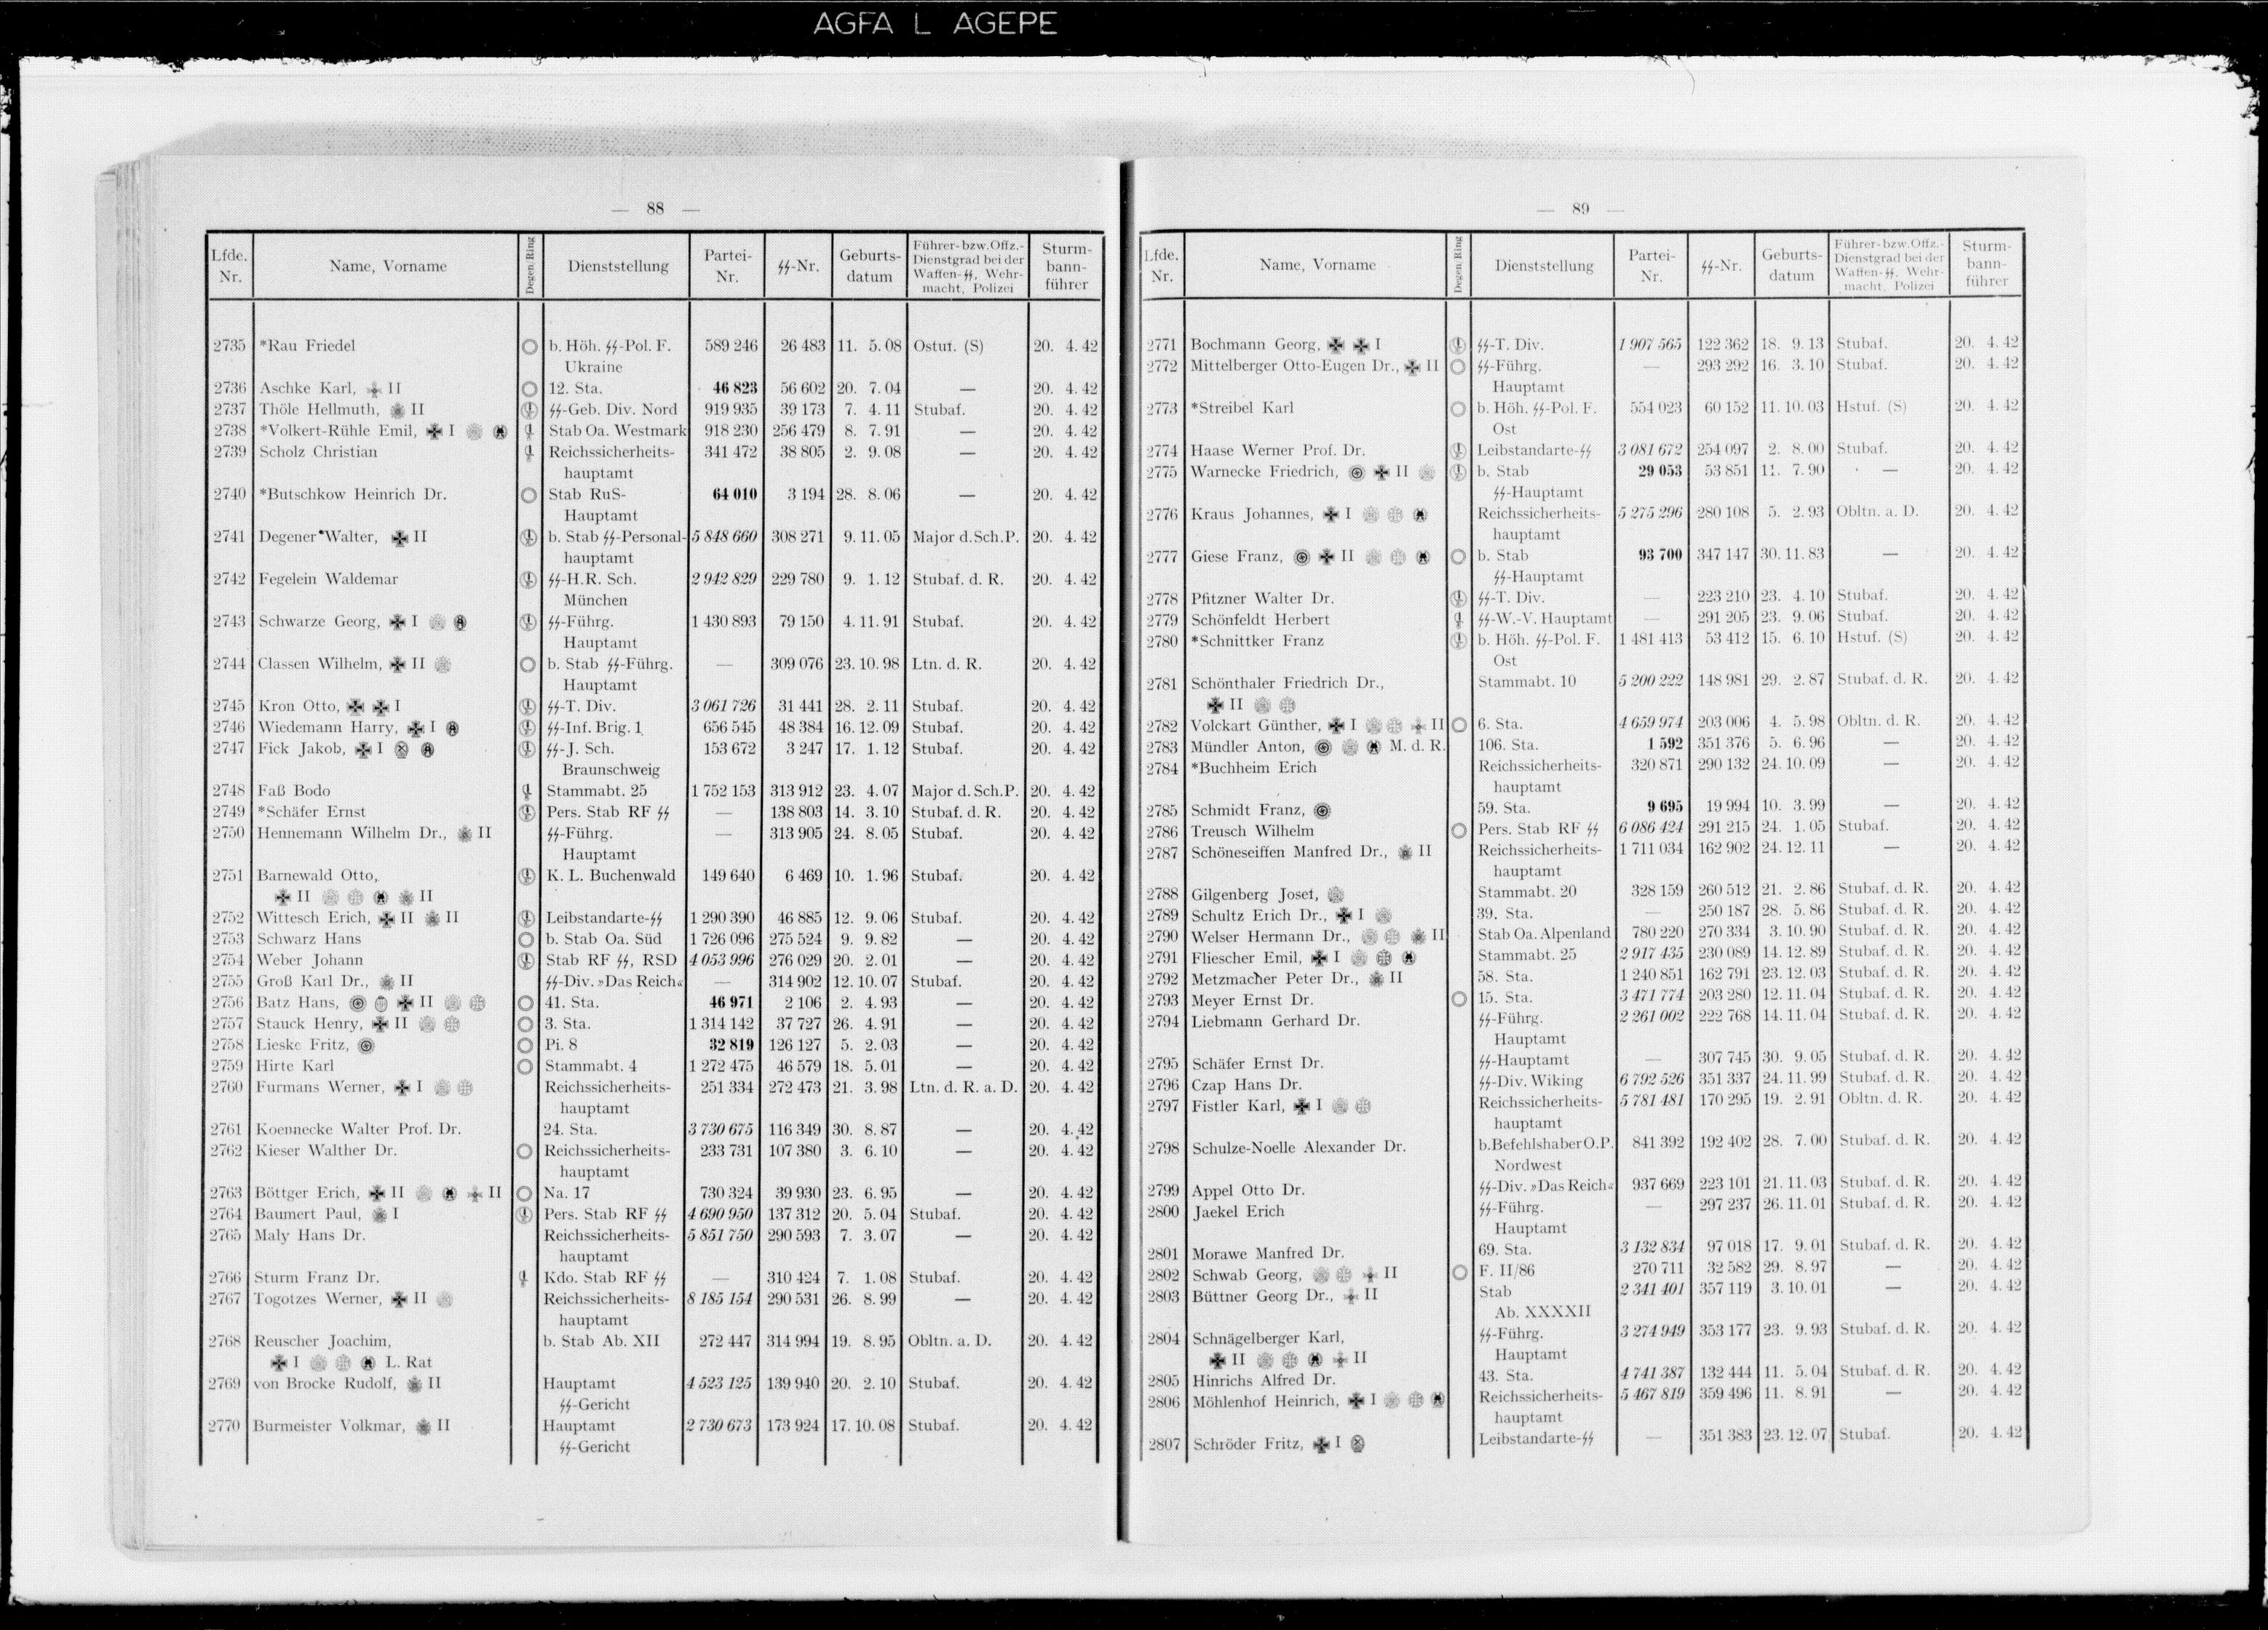 AGFA L AGEPE
— 88 —
Lfde. Nr. Name, Vorname Degen/Ring Dienststellung Partei-Nr. ϟϟ-Nr. Geburts-datum Führer- bzw. Offz.-Dienstgrad bei der Waffen-ϟϟ, Wehr-macht, Polizei Sturm-bann-führer
2735 *Rau Friedel b. Höh. ϟϟ-Pol. F. 589 246 26 483 11. 5. 08 Ostuf. (S) 20. 4. 42
Ukraine
2736 Aschke Karl, II 12. Sta. 46 823 56 602 20. 7. 04 — 20. 4. 42
2737 Thöle Hellmuth, II ϟϟ-Geb. Div. Nord 919 935 39 173 7. 4. 11 Stubaf. 20. 4. 42
2738 *Volkert-Rühle Emil, I Stab Oa. Westmark 918 230 256 479 8. 7. 91 — 20. 4. 42
2739 Scholz Christian Reichssicherheits- 341 472 38 805 2. 9. 08 — 20. 4. 42
hauptamt
2740 *Butschkow Heinrich Dr. Stab RuS- 64 010 3 194 28. 8. 06 — 20. 4. 42
Hauptamt
2741 Degener Walter, II b. Stab ϟϟ-Personal- 5 848 660 308 271 9. 11. 05 Major d. Sch. P. 20. 4. 42
hauptamt
2742 Fegelein Waldemar ϟϟ-H.R. Sch. 2 942 829 229 780 9. 1. 12 Stubaf. d. R. 20. 4. 42
München
2743 Schwarze Georg, I ϟϟ-Führg. 1 430 893 79 150 4. 11. 91 Stubaf. 20. 4. 42
Hauptamt
2744 Classen Wilhelm, II b. Stab ϟϟ-Führg. — 309 076 23. 10. 98 Ltn. d. R. 20. 4. 42
Hauptamt
2745 Kron Otto, I ϟϟ-T. Div. 3 061 726 31 441 28. 2. 11 Stubaf. 20. 4. 42
2746 Wiedemann Harry, I ϟϟ-Inf. Brig. 1 656 545 48 384 16. 12. 09 Stubaf. 20. 4. 42
2747 Fick Jakob, I ϟϟ-J. Sch. 153 672 3 247 17. 1. 12 Stubaf. 20. 4. 42
Braunschweig
2748 Faß Bodo Stammabt. 25 1 752 153 313 912 23. 4. 07 Major d. Sch. P. 20. 4. 42
2749 *Schäfer Ernst Pers. Stab RF ϟϟ — 138 803 14. 3. 10 Stubaf. d. R. 20. 4. 42
2750 Hennemann Wilhelm Dr., II ϟϟ-Führg. — 313 905 24. 8. 05 Stubaf. 20. 4. 42
Hauptamt
2751 Barnewald Otto, K. L. Buchenwald 149 640 6 469 10. 1. 96 Stubaf. 20. 4. 42
II II
2752 Wittesch Erich, II II Leibstandarte-ϟϟ 1 290 390 46 885 12. 9. 06 Stubaf. 20. 4. 42
2753 Schwarz Hans b. Stab Oa. Süd 1 726 096 275 524 9. 9. 82 — 20. 4. 42
2754 Weber Johann Stab RF ϟϟ, RSD 4 053 996 276 029 20. 2. 01 — 20. 4. 42
2755 Groß Karl Dr., II ϟϟ-Div. »Das Reich« — 314 902 12. 10. 07 Stubaf. 20. 4. 42
2756 Batz Hans, II 41. Sta. 46 971 2 106 2. 4. 93 — 20. 4. 42
2757 Stauck Henry, II 3. Sta. 1 314 142 37 727 26. 4. 91 — 20. 4. 42
2758 Lieske Fritz, Pi. 8 32 819 126 127 5. 2. 03 — 20. 4. 42
2759 Hirte Karl Stammabt. 4 1 272 475 46 579 18. 5. 01 — 20. 4. 42
2760 Furmans Werner, I Reichssicherheits- 251 334 272 473 21. 3. 98 Ltn. d. R. a. D. 20. 4. 42
hauptamt
2761 Koennecke Walter Prof. Dr. 24. Sta. 3 730 675 116 349 30. 8. 87 — 20. 4. 42
2762 Kieser Walther Dr. Reichssicherheits- 233 731 107 380 3. 6. 10 — 20. 4. 42
hauptamt
2763 Böttger Erich, II II Na. 17 730 324 39 930 23. 6. 95 — 20. 4. 42
2764 Baumert Paul, I Pers. Stab RF ϟϟ 4 690 950 137 312 20. 5. 04 Stubaf. 20. 4. 42
2765 Maly Hans Dr. Reichssicherheits- 5 851 750 290 593 7. 3. 07 — 20. 4. 42
hauptamt
2766 Sturm Franz Dr. Kdo. Stab RF ϟϟ — 310 424 7. 1. 08 Stubaf. 20. 4. 42
2767 Togotzes Werner, II Reichssicherheits- 8 185 154 290 531 26. 8. 99 — 20. 4. 42
hauptamt
2768 Reuscher Joachim, b. Stab Ab. XII 272 447 314 994 19. 8. 95 Obltn. a. D. 20. 4. 42
I L. Rat
2769 von Brocke Rudolf, II Hauptamt 4 523 125 139 940 20. 2. 10 Stubaf. 20. 4. 42
ϟϟ-Gericht
2770 Burmeister Volkmar, II Hauptamt 2 730 673 173 924 17. 10. 08 Stubaf. 20. 4. 42
ϟϟ-Gericht
— 89 —
Lfde. Nr. Name, Vorname Degen/Ring Dienststellung Partei-Nr. ϟϟ-Nr. Geburts-datum Führer- bzw. Offz.-Dienstgrad bei der Waffen-ϟϟ, Wehr-macht, Polizei Sturm-bann-führer
2771 Bochmann Georg, I ϟϟ-T. Div. 1 907 565 122 362 18. 9. 13 Stubaf. 20. 4. 42
2772 Mittelberger Otto-Eugen Dr., II ϟϟ-Führg. — 293 292 16. 3. 10 Stubaf. 20. 4. 42
Hauptamt
2773 *Streibel Karl b. Höh. ϟϟ-Pol. F. 554 023 60 152 11. 10. 03 Hstuf. (S) 20. 4. 42
Ost
2774 Haase Werner Prof. Dr. Leibstandarte-ϟϟ 3 081 672 254 097 2. 8. 00 Stubaf. 20. 4. 42
2775 Warnecke Friedrich, II b. Stab 29 053 53 851 11. 7. 90 — 20. 4. 42
ϟϟ-Hauptamt
2776 Kraus Johannes, I Reichssicherheits- 5 275 296 280 108 5. 2. 93 Obltn. a. D. 20. 4. 42
hauptamt
2777 Giese Franz, II b. Stab 93 700 347 147 30. 11. 83 — 20. 4. 42
ϟϟ-Hauptamt
2778 Pfitzner Walter Dr. ϟϟ-T. Div. — 223 210 23. 4. 10 Stubaf. 20. 4. 42
2779 Schönfeldt Herbert ϟϟ-W.-V. Hauptamt — 291 205 23. 9. 06 Stubaf. 20. 4. 42
2780 *Schnittker Franz b. Höh. ϟϟ-Pol. F. 1 481 413 53 412 15. 6. 10 Hstuf. (S) 20. 4. 42
Ost
2781 Schönthaler Friedrich Dr., Stammabt. 10 5 200 222 148 981 29. 2. 87 Stubaf. d. R. 20. 4. 42
II
2782 Volckart Günther, I II 6. Sta. 4 659 974 203 006 4. 5. 98 Obltn. d. R. 20. 4. 42
2783 Mündler Anton, M. d. R. 106. Sta. 1 592 351 376 5. 6. 96 — 20. 4. 42
2784 *Buchheim Erich Reichssicherheits- 320 871 290 132 24. 10. 09 — 20. 4. 42
hauptamt
2785 Schmidt Franz, 59. Sta. 9 695 19 994 10. 3. 99 — 20. 4. 42
2786 Treusch Wilhelm Pers. Stab RF ϟϟ 6 086 424 291 215 24. 1. 05 Stubaf. 20. 4. 42
2787 Schöneseiffen Manfred Dr., II Reichssicherheits- 1 711 034 162 902 24. 12. 11 — 20. 4. 42
hauptamt
2788 Gilgenberg Josef, Stammabt. 20 328 159 260 512 21. 2. 86 Stubaf. d. R. 20. 4. 42
2789 Schultz Erich Dr., I 39. Sta. — 250 187 28. 5. 86 Stubaf. d. R. 20. 4. 42
2790 Welser Hermann Dr., II Stab Oa. Alpenland 780 220 270 334 3. 10. 90 Stubaf. d. R. 20. 4. 42
2791 Fliescher Emil, I Stammabt. 25 2 917 435 230 089 14. 12. 89 Stubaf. d. R. 20. 4. 42
2792 Metzmacher Peter Dr., II 58. Sta. 1 240 851 162 791 23. 12. 03 Stubaf. d. R. 20. 4. 42
2793 Meyer Ernst Dr. 15. Sta. 3 471 774 203 280 12. 11. 04 Stubaf. d. R. 20. 4. 42
2794 Liebmann Gerhard Dr. ϟϟ-Führg. 2 261 002 222 768 14. 11. 04 Stubaf. d. R. 20. 4. 42
Hauptamt
2795 Schäfer Ernst Dr. ϟϟ-Hauptamt — 307 745 30. 9. 05 Stubaf. d. R. 20. 4. 42
2796 Czap Hans Dr. ϟϟ-Div. Wiking 6 792 526 351 337 24. 11. 99 Stubaf. d. R. 20. 4. 42
2797 Fistler Karl, I Reichssicherheits- 5 781 481 170 295 19. 2. 91 Obltn. d. R. 20. 4. 42
hauptamt
2798 Schulze-Noelle Alexander Dr. b. Befehlshaber O.P. 841 392 192 402 28. 7. 00 Stubaf. d. R. 20. 4. 42
Nordwest
2799 Appel Otto Dr. ϟϟ-Div. »Das Reich« 937 669 223 101 21. 11. 03 Stubaf. d. R. 20. 4. 42
2800 Jaekel Erich ϟϟ-Führg. — 297 237 26. 11. 01 Stubaf. d. R. 20. 4. 42
Hauptamt
2801 Morawe Manfred Dr. 69. Sta. 3 132 834 97 018 17. 9. 01 Stubaf. d. R. 20. 4. 42
2802 Schwab Georg, II F. II/86 270 711 32 582 29. 8. 97 — 20. 4. 42
2803 Büttner Georg Dr., II Stab 2 341 401 357 119 3. 10. 01 — 20. 4. 42
Ab. XXXXII
2804 Schnägelberger Karl, ϟϟ-Führg. 3 274 949 353 177 23. 9. 93 Stubaf. d. R. 20. 4. 42
II II Hauptamt
2805 Hinrichs Alfred Dr. 43. Sta. 4 741 387 132 444 11. 5. 04 Stubaf. d. R. 20. 4. 42
2806 Möhlenhof Heinrich, I Reichssicherheits- 5 467 819 359 496 11. 8. 91 — 20. 4. 42
hauptamt
2807 Schröder Fritz, I Leibstandarte-ϟϟ — 351 383 23. 12. 07 Stubaf. 20. 4. 42